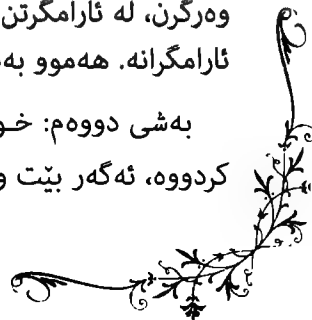 وەرگرن، لە ئارامگرتن
ئارامگرانە. هەموو
بەشی دووەم:
کردووە، ئەگەر بێت و